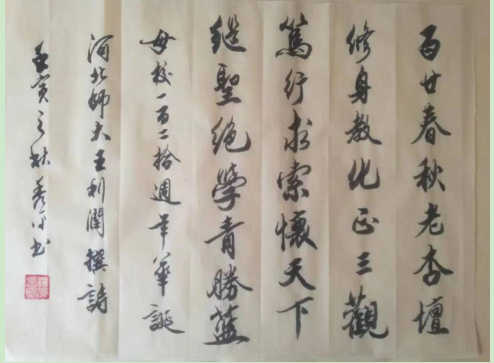 百廿春秋老杏壇
修身教化正三觀
篤行求索懷天下
繼聖絶學青勝藍
母校一百二拾週年華誕
河北師大王利閣撰詩
壬寅之秋秀平书